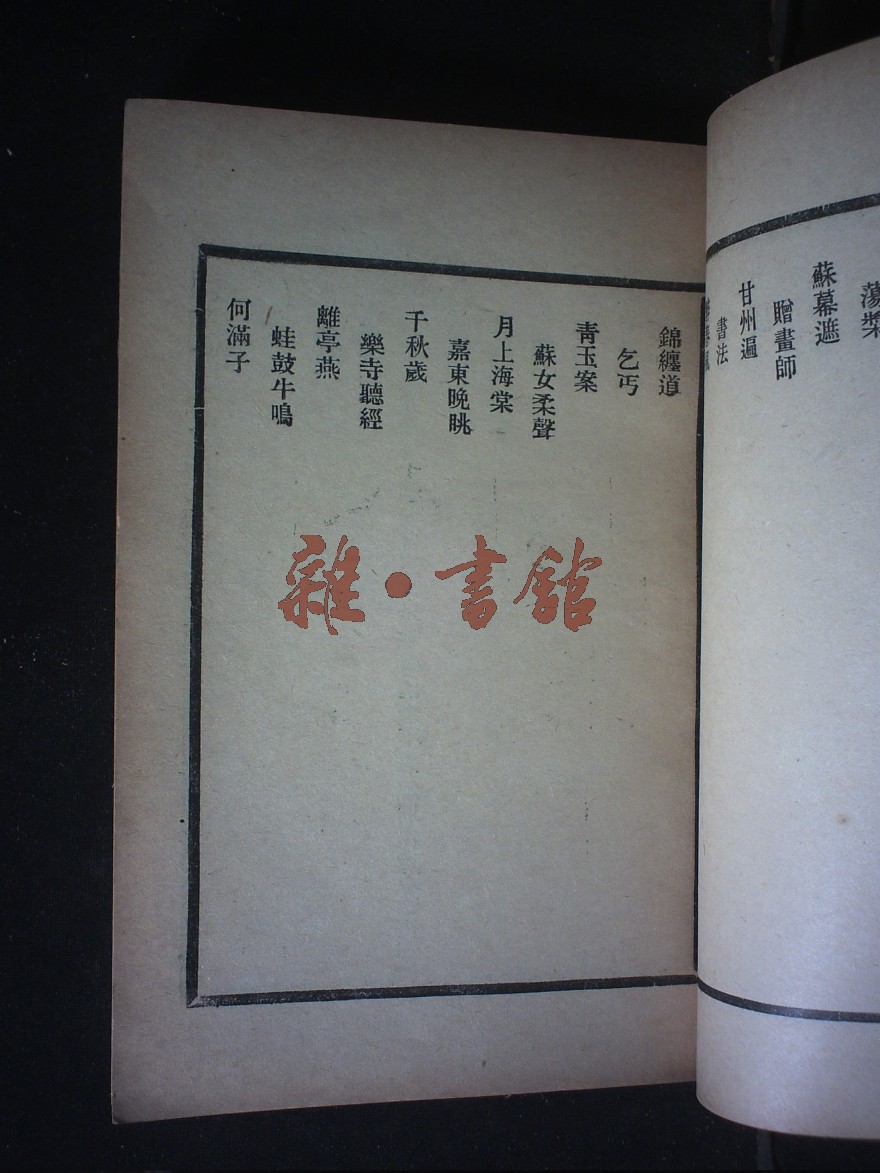 蕩槳
蘇幕遮
贈畫師
甘州遍
書法
錦纏道
乞丐
青玉案
蘇女柔聲
月上海棠
嘉東晚眺
千秋歲
樂寺聽經
離亭燕
蛙鼓牛鳴
何滿子
雜·書館